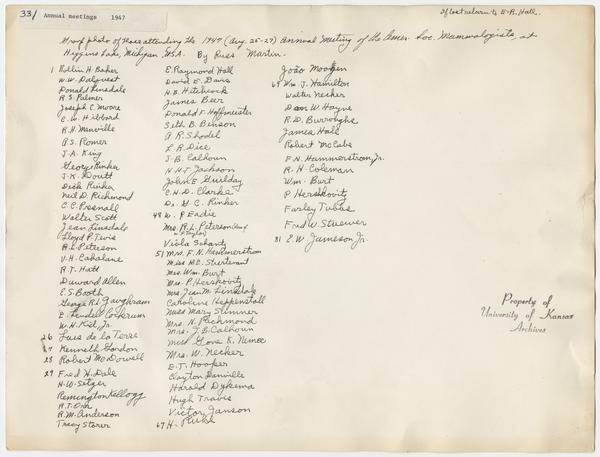 33/ Annual meetings 1947
If lost return to E.R. Hall.
Group photo of those attending the 1947 (Aug. 25-27) Annual Meeting of the Amer. Soc. Mammalogists, at
Higgins Lake, Michigan, USA. By Russ Martin.
1 Rollin H. Baker
W.W. Dalquest
Donald Linsdale
R.S. Palmer
Joseph C. Moore
C.W. Hibbard
R.H. Manville
A.S. Romer
J.A. King
George Rinker
J.K. Doutt
Dick Rinker
Neil D. Richmond
C.C. Presnall
Walter Scott
Jean Linsdale
Lloyd P. Tevis
R.L. Peterson
V.H. Cahalane
R.T. Hatt
Durward Allen
E.S. Booth
George R.L. Gaughran
E. Lendell Cockrum
W.H. Kiel, Jr.
26 Luis de la Torre
27 Kenneth Gordon
28 Robert McDowell
29 Fred H. Dale
H.W. Setzer
Remington Kellogg
R.T. Orr
R.M. Anderson
Tracy Storer
E. Raymond Hall
David E. Davis
H.B. Hitchcock
James Beer
Donald F. Hoffmeister
Seth B. Benson
A.R. Shadel
L.R. Dice
J.B. Calhoun
H.H.T. Jackson
John E. Guilday
C.H.D. Clarke
Dr. G.C. Rinker
48 W.P. Eadie
Mrs. R.L. Peterson
Viola Schantz
51 Mrs. F.N. Hammerstrom
Miss M.C. Sturtevant
Mrs. Wm. Burt
Mrs. P. Hershkovitz
Mrs. Jean M. Linsdale
Caroline Heppenstall
Miss Mary Summer
Mrs. N. Richmond
Mrs. J.B. Calhoun
Mrs. W. Necker
E.T. Hooper
Clayton
Harold Dykema
Hugh Travis
Victor Janson
67 H.
João Moojen
69 Wm. J. Hamilton
Walter Necker
Don W. Hayne
R.D. Burroughs
James Hall
Robert McCabe
F.N. Hammerstrom, Jr.
R.H. Coleman
Wm. Burt
P. Hershkovitz
Farley Tubbs
Fred W. Stuewer
81 E.W. Jameson Jr.
Property of
University of Kansas
Archives